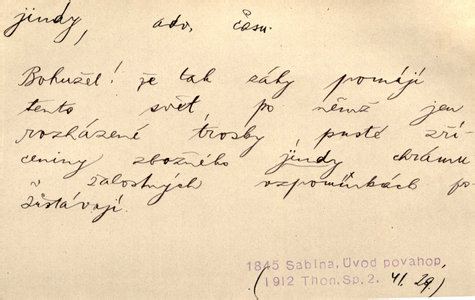 jindy, adv. času.
Bohužel! že tak záhy pomíjí
tento svět, po němž jen
rozházené trosby, pusté zří
ceniny zbožného jindy chrámu
v žalostných vzpomínkách po
zůstávají.
1845 Sabina, Úvod povahop,
(1912 Thon. Sp. 2. 41. 29.)